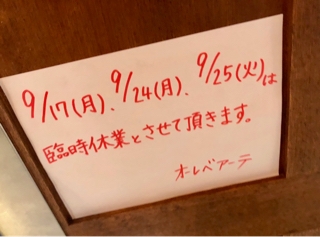 9/17(月)、9/24(月)、9/25(火)は
臨時休業とさせて頂きます。
オーレベアーテ